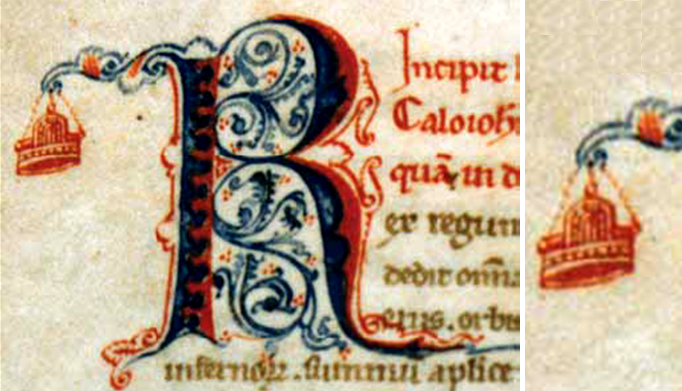 R
Incipit
Caloioh
quā in d
ex regum
dedit om̄a
infernoꝝ. summi aplice